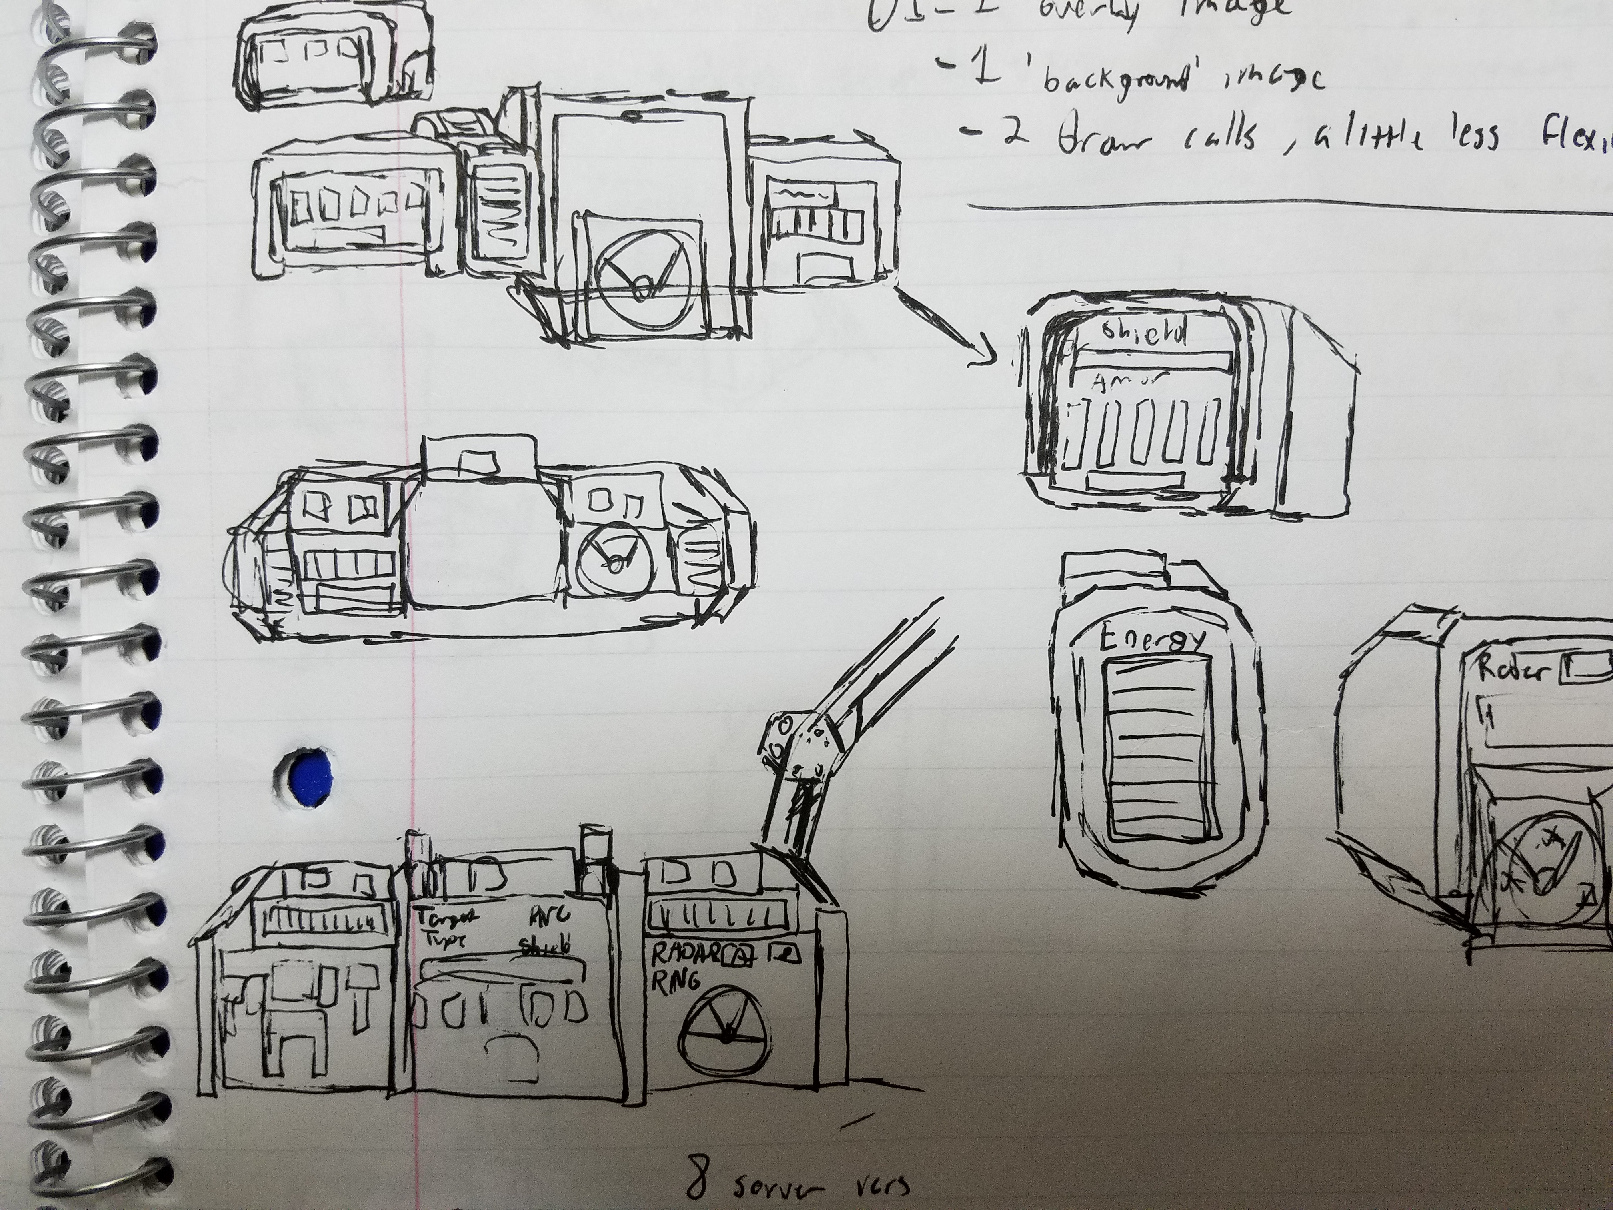 UI - 1 overlay image
- 1 'background' image
- 2 draw calls, a little less flexi
Shield
Armor
Energy
Radar
Target
Type
RNG
Shield
RADAR
RNG
8